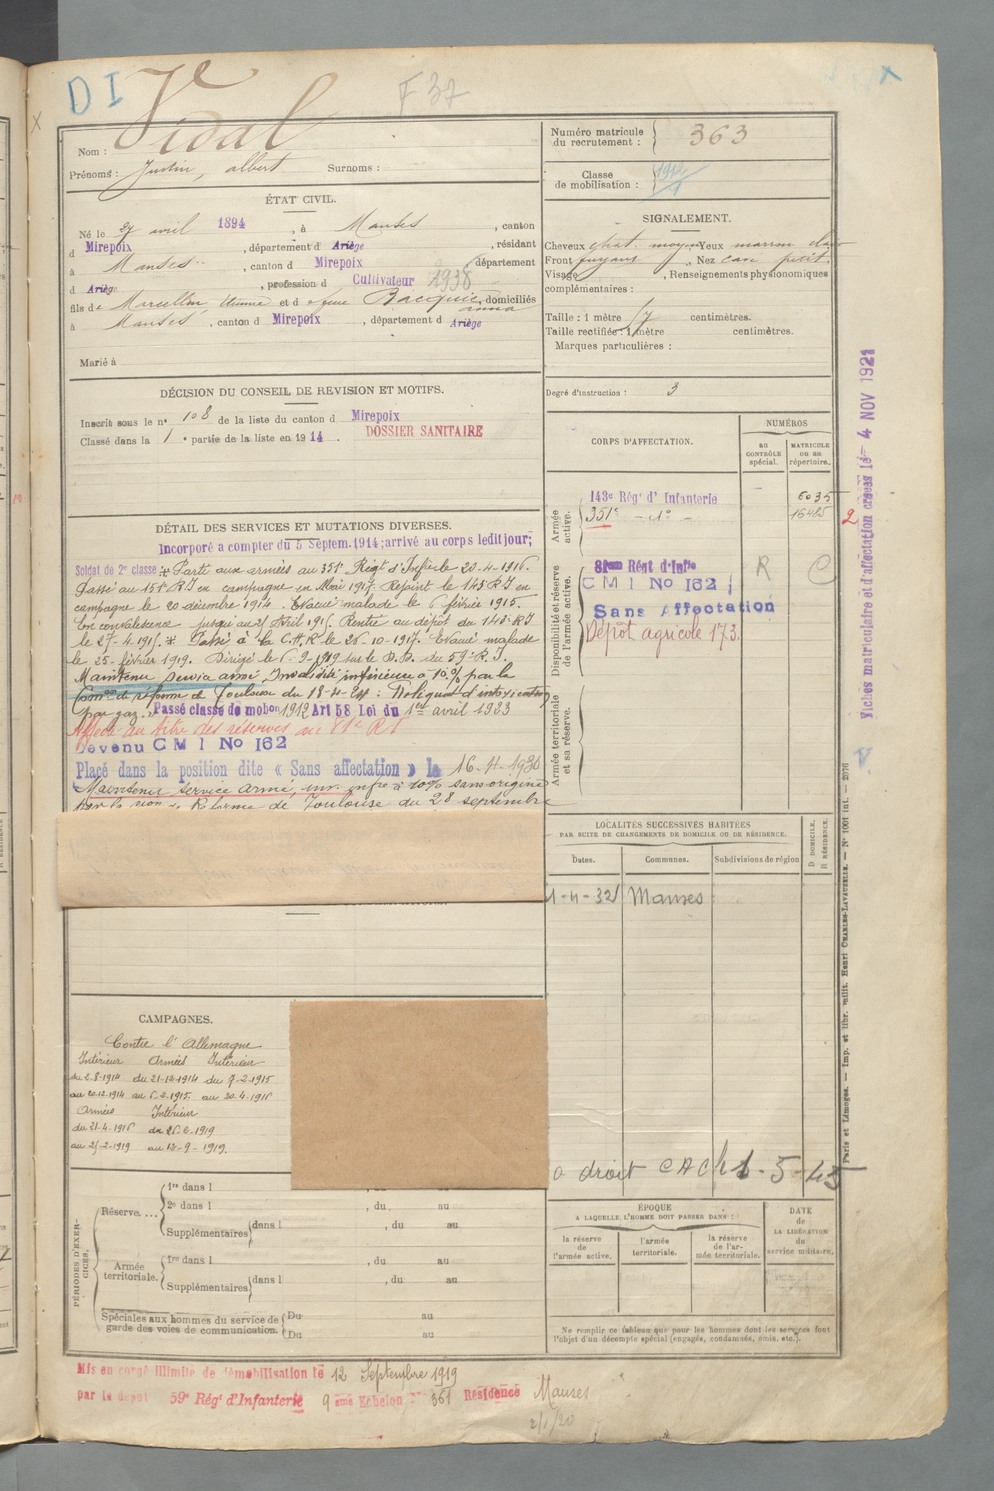 D I
F 37
Nom : Vidal
Prénoms : Justin, albert Surnoms :
Numéro matricule du recrutement : 363
Classe de mobilisation : 1912
ÉTAT CIVIL.
Né le 27 avril 1894, à Manses, canton
d Mirepoix, département d Ariège, résidant
à Manses, canton d Mirepoix département
d Ariège, profession d Cultivateur 1938
fils de Marcellin, Etienne et d feue Bacquié, anna domiciliés
à Manses, canton d Mirepoix, département d Ariège
Marié à
SIGNALEMENT.
Cheveux chat. moyen Yeux marron clair
Front fuyant, Nez cave petit.
Visage , Renseignements physionomiques
complémentaires :
Taille : 1 mètre 57 centimètres.
Taille rectifiée : 1 mètre centimètres.
Marques particulières :
Degré d'instruction : 3
DÉCISION DU CONSEIL DE REVISION ET MOTIFS.
Inscrit sous le n° 108 de la liste du canton d Mirepoix
Classé dans la 1 e partie de la liste en 1914.
DOSSIER SANITAIRE
CORPS D'AFFECTATION.
NUMÉROS
AU CONTRÔLE spécial.
MATRICULE OU AU répertoire.
Armée active.
143e Rég' d' Infanterie - 6035
351e - d° - 16485
2
Disponibilité et réserve de l'armée active.
81eme Régt d'Infie R C
C M I No 162
Sans Affectation
Dépôt agricole 173.
Armée territoriale et sa réserve.
DÉTAIL DES SERVICES ET MUTATIONS DIVERSES.
Incorporé a compter du 5 Septem. 1914; arrivé au corps ledit jour;
Soldat de 2e classe * Parti aux armées au 351e Régt d'Infie le 20-4-1916.
Passé au 151e R.I en campagne en Mai 1917. Rejoint le 143e R I en
campagne le 20 décembre 1914. Evacué malade le 6 février 1915.
En convalescence jusqu'au 27 Avril 1915. Rentré au dépôt du 143e R I
le 27-4-1915. * Passé à la C.H.R le 26-10-1917. Evacué malade
le 25 février 1919. Dirigé le 6-9-1919 sur le D.D. du 59e R.I.
Maintenu service armé, Invalidité inférieure à 10% par la
Comon de réforme de Toulouse du 18-11-24 : Reliquat d'intoxication
par gaz. Passé classe de mobon 1912 Art 58 Loi du 1er avril 1923
Affecté au titre des réserves au 81e R I
Devenu C M I No 162
Placé dans la position dite « Sans affectation » le 16-4-1930
Maintenu service armé, inv. infre à 10% sans origine
par la sion de Réforme de Toulouse du 28 septembre
LOCALITÉS SUCCESSIVES HABITÉES
PAR SUITE DE CHANGEMENTS DE DOMICILE OU DE RÉSIDENCE.
Dates. Communes. Subdivisions de région
D DOMICILE. R RÉSIDENCE.
1-4-32 Manses
CAMPAGNES.
Contre l'Allemagne
Intérieur Armées Intérieur
du 2-8-1914 du 21-12-1914 du 7-2-1915
au 20-12-1914 au 6-2-1915 au 20-4-1916
Armées Intérieur
du 21-4-1916 du 26-2-1919
au 25-2-1919 au 12-9-1919.
a droit CAC 1-5-45
PÉRIODES D'EXERCICES.
Réserve....
1re dans l , du au
2e dans l , du au
Supplémentaires dans l , du au
Armée territoriale.
1re dans l , du au
Supplémentaires dans l , du au
Spéciales aux hommes du service de garde des voies de communication.
Du au
Du au
ÉPOQUE
A LAQUELLE L'HOMME DOIT PASSER DANS :
la réserve de l'armée active.
l'armée territoriale.
la réserve de l'armée territoriale.
DATE de LA LIBÉRATION du service militaire.
Ne remplir ce tableau que pour les hommes dont les services font
l'objet d'un décompte spécial (engagés, condamnés, omis, etc.).
Mis en congé illimité de démobilisation le 12 Septembre 1919
par le dépôt 59e Régt d'Infanterie 9 ème Echelon N° 361 Résidence Manses
2/1/20
Fiches matriculaire et d'affectation créées le 4 NOV 1921
Paris et Limoges. — Imp. et libr. milit. Henri CHARLES-LAVAUZELLE. — N° 1001 int. — 2076